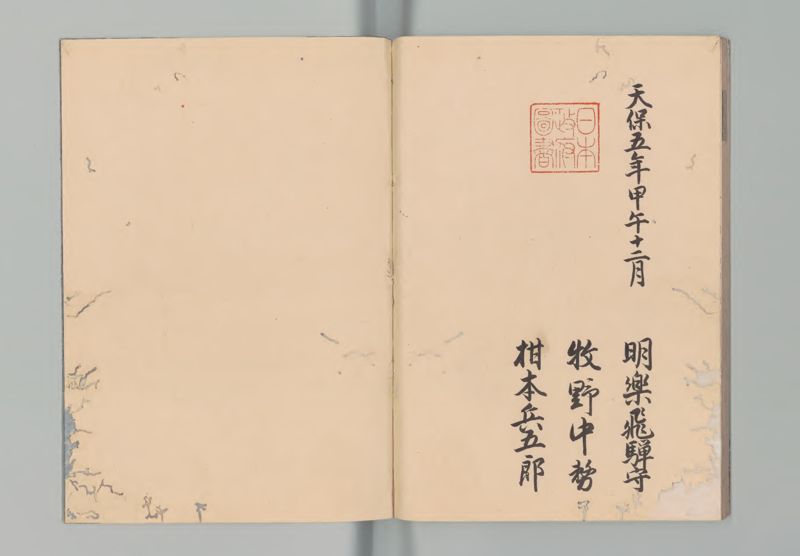 天保五年甲午十二月
明樂飛騨守
牧野中務
柑本兵五郎
日本
政府
圖書